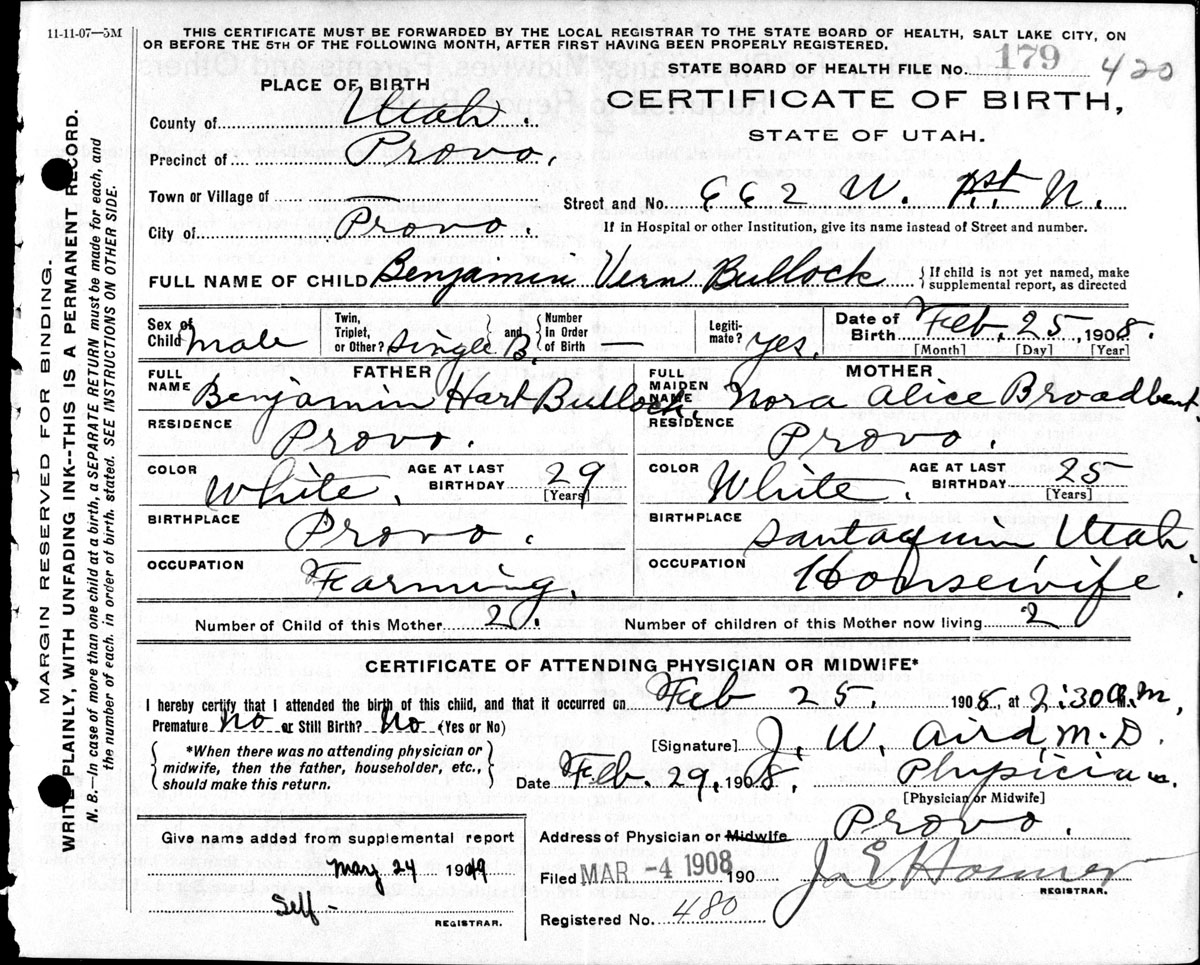 11-11-07—5M
THIS CERTIFICATE MUST BE FORWARDED BY THE LOCAL REGISTRAR TO THE STATE BOARD OF HEALTH, SALT LAKE CITY, ON
OR BEFORE THE 5TH OF THE FOLLOWING MONTH, AFTER FIRST HAVING BEEN PROPERLY REGISTERED.
STATE BOARD OF HEALTH FILE No. 179 420
PLACE OF BIRTH
CERTIFICATE OF BIRTH,
STATE OF UTAH.
County of Utah.
Precinct of Provo.
Town or Village of —
Street and No. 662 W. 1st N.
City of Provo.
If in Hospital or other Institution, give its name instead of Street and number.
FULL NAME OF CHILD Benjamin Vern Bullock
{If child is not yet named, make
supplemental report, as directed
Sex of Child male
Twin, Triplet, or Other? Single B. } and { Number in Order of Birth —
Legitimate? yes.
Date of Birth Feb. 25, 1908.
[Month] [Day] [Year]
FATHER
MOTHER
FULL NAME Benjamin Hart Bullock.
FULL MAIDEN NAME Nora Alice Broadbent.
RESIDENCE Provo.
RESIDENCE Provo.
COLOR White. AGE AT LAST BIRTHDAY 29 [Years]
COLOR White. AGE AT LAST BIRTHDAY 25 [Years]
BIRTHPLACE Provo.
BIRTHPLACE Santaquin Utah.
OCCUPATION Farming.
OCCUPATION Housewife.
Number of Child of this Mother 2.
Number of children of this Mother now living 2
CERTIFICATE OF ATTENDING PHYSICIAN OR MIDWIFE*
I hereby certify that I attended the birth of this child, and that it occurred on Feb 25, 1908, at 2:30 a.m,
Premature No or Still Birth? No (Yes or No)
{*When there was no attending physician or
midwife, then the father, householder, etc.,
should make this return.}
[Signature] J. W. Aird, M.D.
Date Feb. 29, 1908. Physician.
[Physician or Midwife]
Address of Physician or Midwife Provo.
Give name added from supplemental report
May 24 1949
Self-
REGISTRAR.
Filed MAR -4 1908 190
REGISTRAR.
Registered No. 480
MARGIN RESERVED FOR BINDING.
WRITE PLAINLY, WITH UNFADING INK--THIS IS A PERMANENT RECORD.
N. B.—In case of more than one child at a birth, a SEPARATE RETURN must be made for each, and
the number of each, in order of birth, stated. SEE INSTRUCTIONS ON OTHER SIDE.